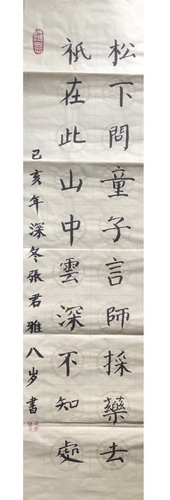 松下問童子言師採藥去
祇在此山中雲深不知處
己亥年深冬張君雅八岁書